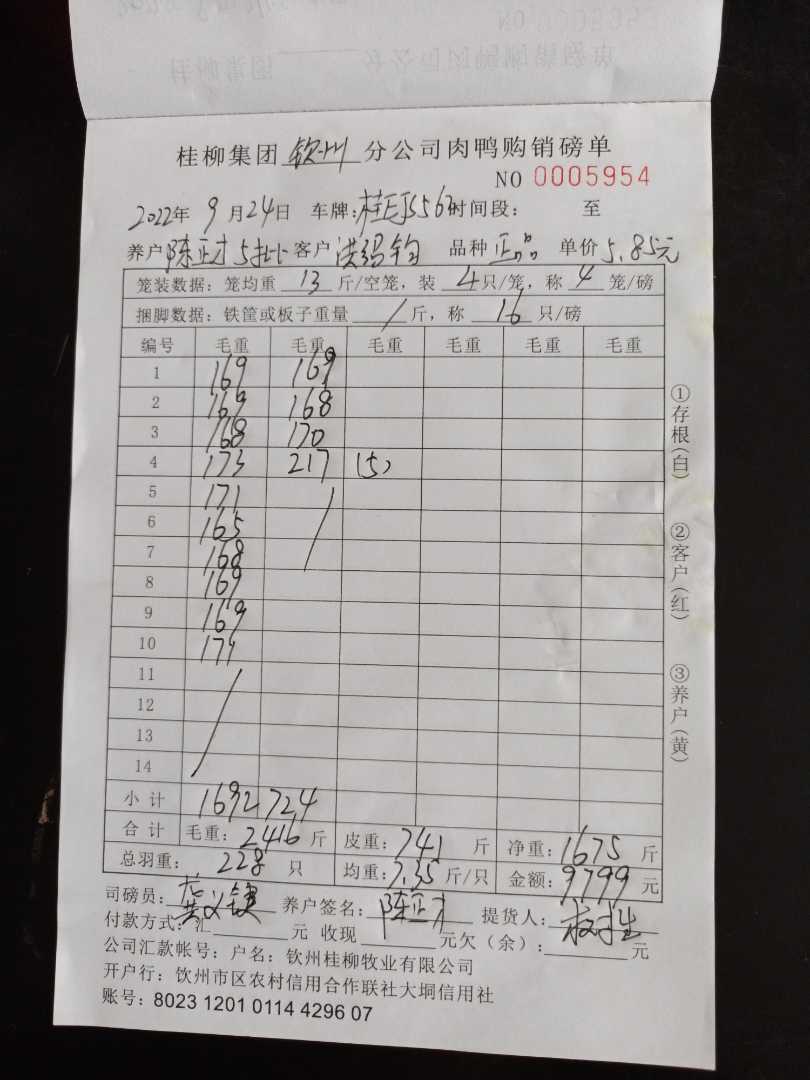 桂柳集团 钦州 分公司肉鸭购销磅单
NO 0005954
2022年 9月24日 车牌: 时间段: 至
养户 陈正才 5批 客户 洪锡钧 品种 正品 单价 5.85元
笼装数据: 笼均重 13 斤/空笼, 装 4只/笼, 称 4 笼/磅
捆脚数据: 铁筐或板子重量 / 斤, 称 16 只/磅
编号 毛重 毛重 毛重 毛重 毛重 毛重
1 169 169
2 169 168
3 168 170
4 173 217 (5)
5 171 /
6 165
7 168
8 169
9 169
10 171
11 /
12
13
14
小计 1692 724
合计 毛重: 2416 斤 皮重: 741 斤 净重: 1675 斤
总羽重: 228 只 均重: 7.35 斤/只 金额: 9799 元
司磅员: 养户签名: 陈正才 提货人:
付款方式: 汇 元 收现 元 欠(余): 元
公司汇款帐号: 户名: 钦州桂柳牧业有限公司
开户行: 钦州市区农村信用合作联社大垌信用社
账号: 8023 1201 0114 4296 07
①存根(白) ②客户(红) ③养户(黄)